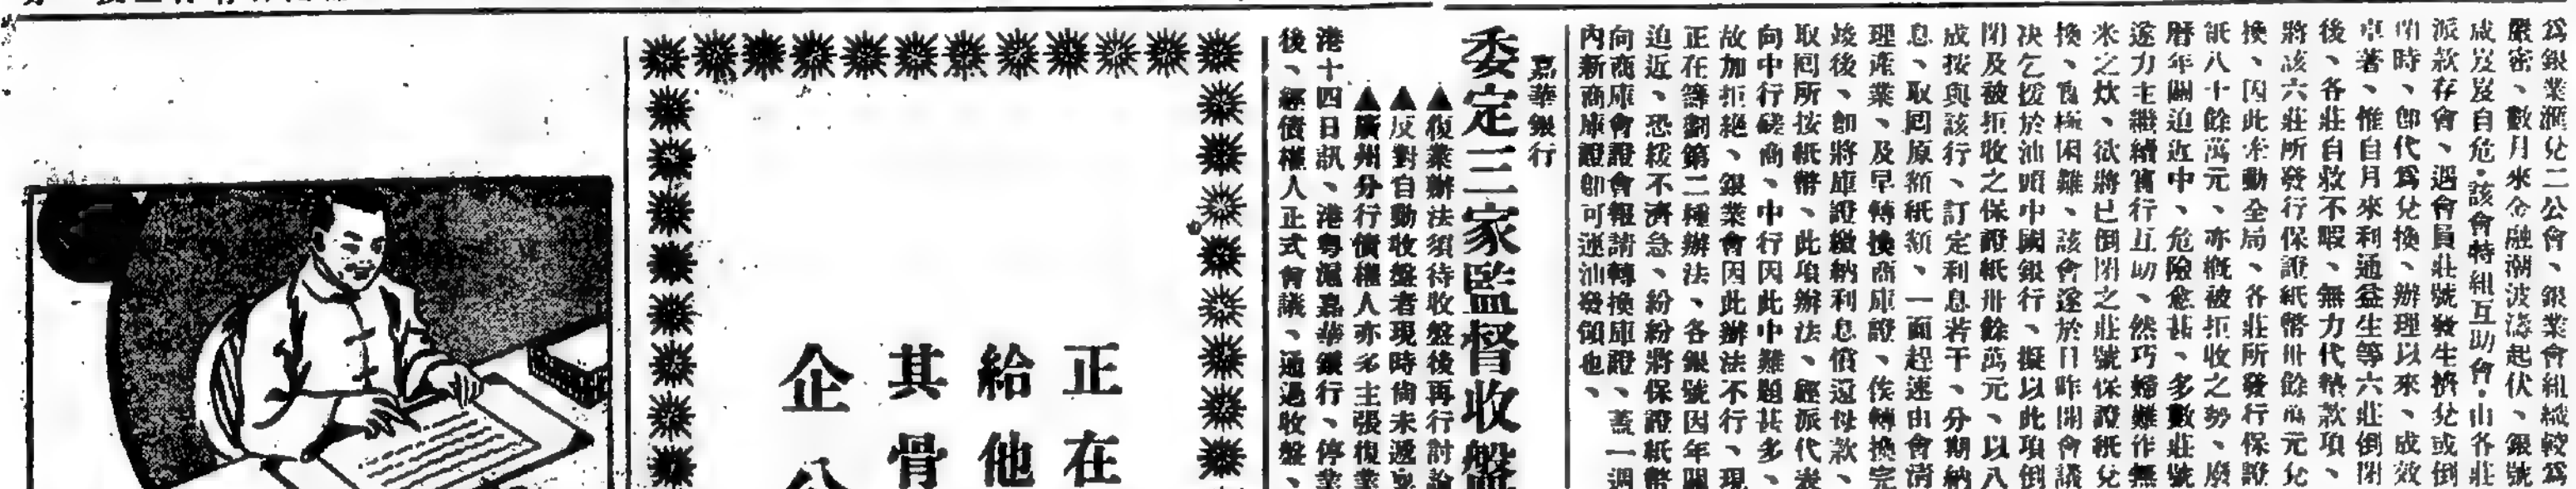 爲銀業滙兌二公會、銀業會組織較爲
嚴密、數月來金融潮波濤起伏、銀號
咸岌岌自危、該會特組互助會、由各莊
派款存會、遇會員莊號發生擠兌或倒
閉時、卽代爲兌換、辦理以來、成效
卓著、惟自月來利通益生等六莊倒閉
後、各莊自救不暇、無力代墊款項、
將該六莊所發行保證紙幣卅餘萬元兌
換、因此牽動全局、各莊所發行保證
紙八十餘萬元、亦槪被拒收之勢、廢
曆年關迫近中、危險愈甚、多數莊號
遂力主繼續實行互助、然巧婦難作無
米之炊、欲將已倒閉之莊號保證紙兌
換、實極困難、該會遂於日昨開會議
决乞援於汕頭中國銀行、擬以此項倒
閉及被拒收之保證紙卅餘萬元、以八
成按與該行、訂定利息若干、分期納
息、取囘原額紙額、一面趕速由會淸
理產業、及早轉換商庫證、俟轉換完
竣後、卽將庫證繳納利息償還母款、
取囘所按紙幣、此項辦法、經派代表
向中行磋商、中行因此中難題甚多、
故加拒絕、銀業會因此辦法不行、現
正在籌劃第二種辦法、各銀號因年關
迫近、恐緩不濟急、紛紛將保證紙幣
向商庫會證會報請轉換庫證、蓋一週
內新商庫證卽可運汕發領也、
嘉華銀行
委定三家監督收盤
▲復業辦法須待收盤後再行討論
▲反對自動收盤者現時尙未遞
▲廣州分行債權人亦多主張復業
港十四日訊、港粵滬嘉華銀行、停業
後、經債權人正式會議、通過收盤、
正在
給他
其骨
企公